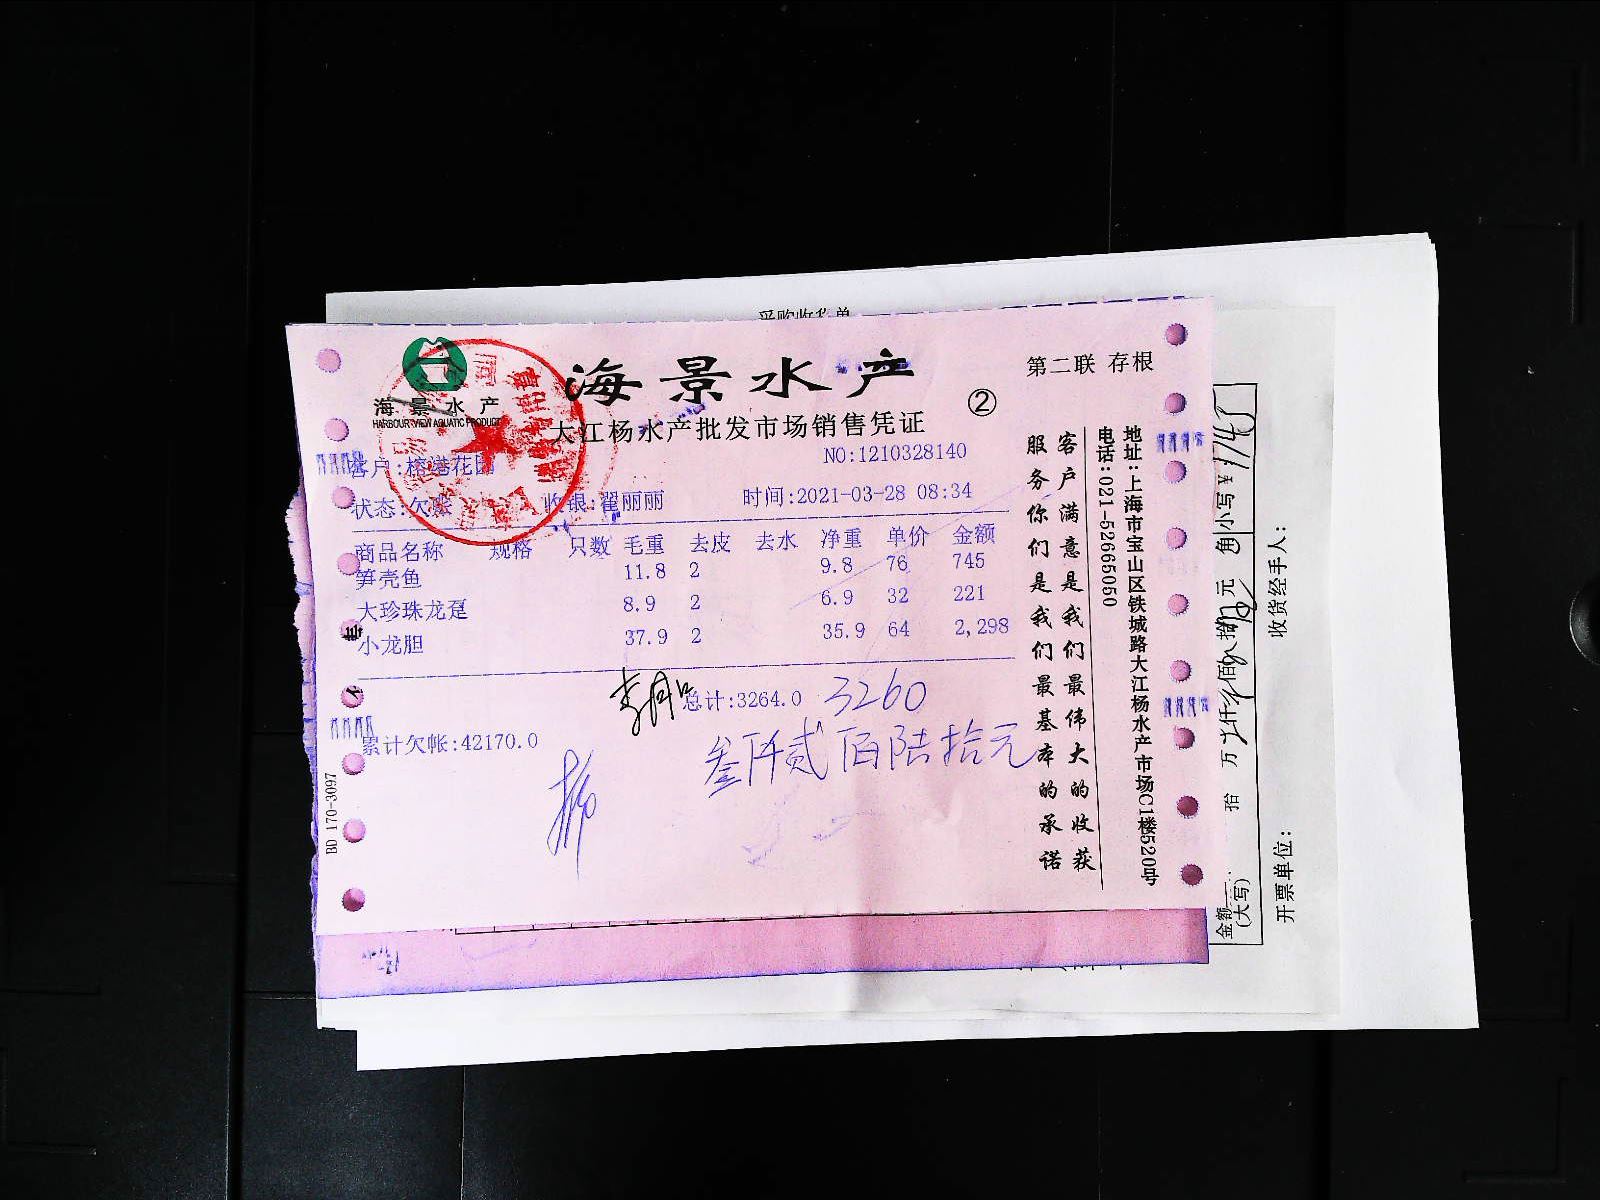 采购收货单
海景水产
第二联 存根
②
海景水产
HARBOUR VIEW AQUATIC PRODUCT
大江杨水产批发市场销售凭证
NO:1210328140
客户:榕港花园
状态:欠账 收银:翟丽丽 时间:2021-03-28 08:34
商品名称 规格 只数 毛重 去皮 去水 净重 单价 金额
笋壳鱼 11.8 2 9.8 76 745
大珍珠龙趸 8.9 2 6.9 32 221
小龙胆 37.9 2 35.9 64 2,298
总计:3264.0 3260
累计欠帐:42170.0
叁仟贰佰陆拾元
BD 170-3097
客户满意是我们最伟大的收获
服务你们是我们最基本的承诺
地址:上海市宝山区铁城路大江杨水产市场C1楼520号
电话:021-52665050
金额(大写) 拾 万 仟 佰 拾 元 角 小写¥
收货经手人:
开票单位: